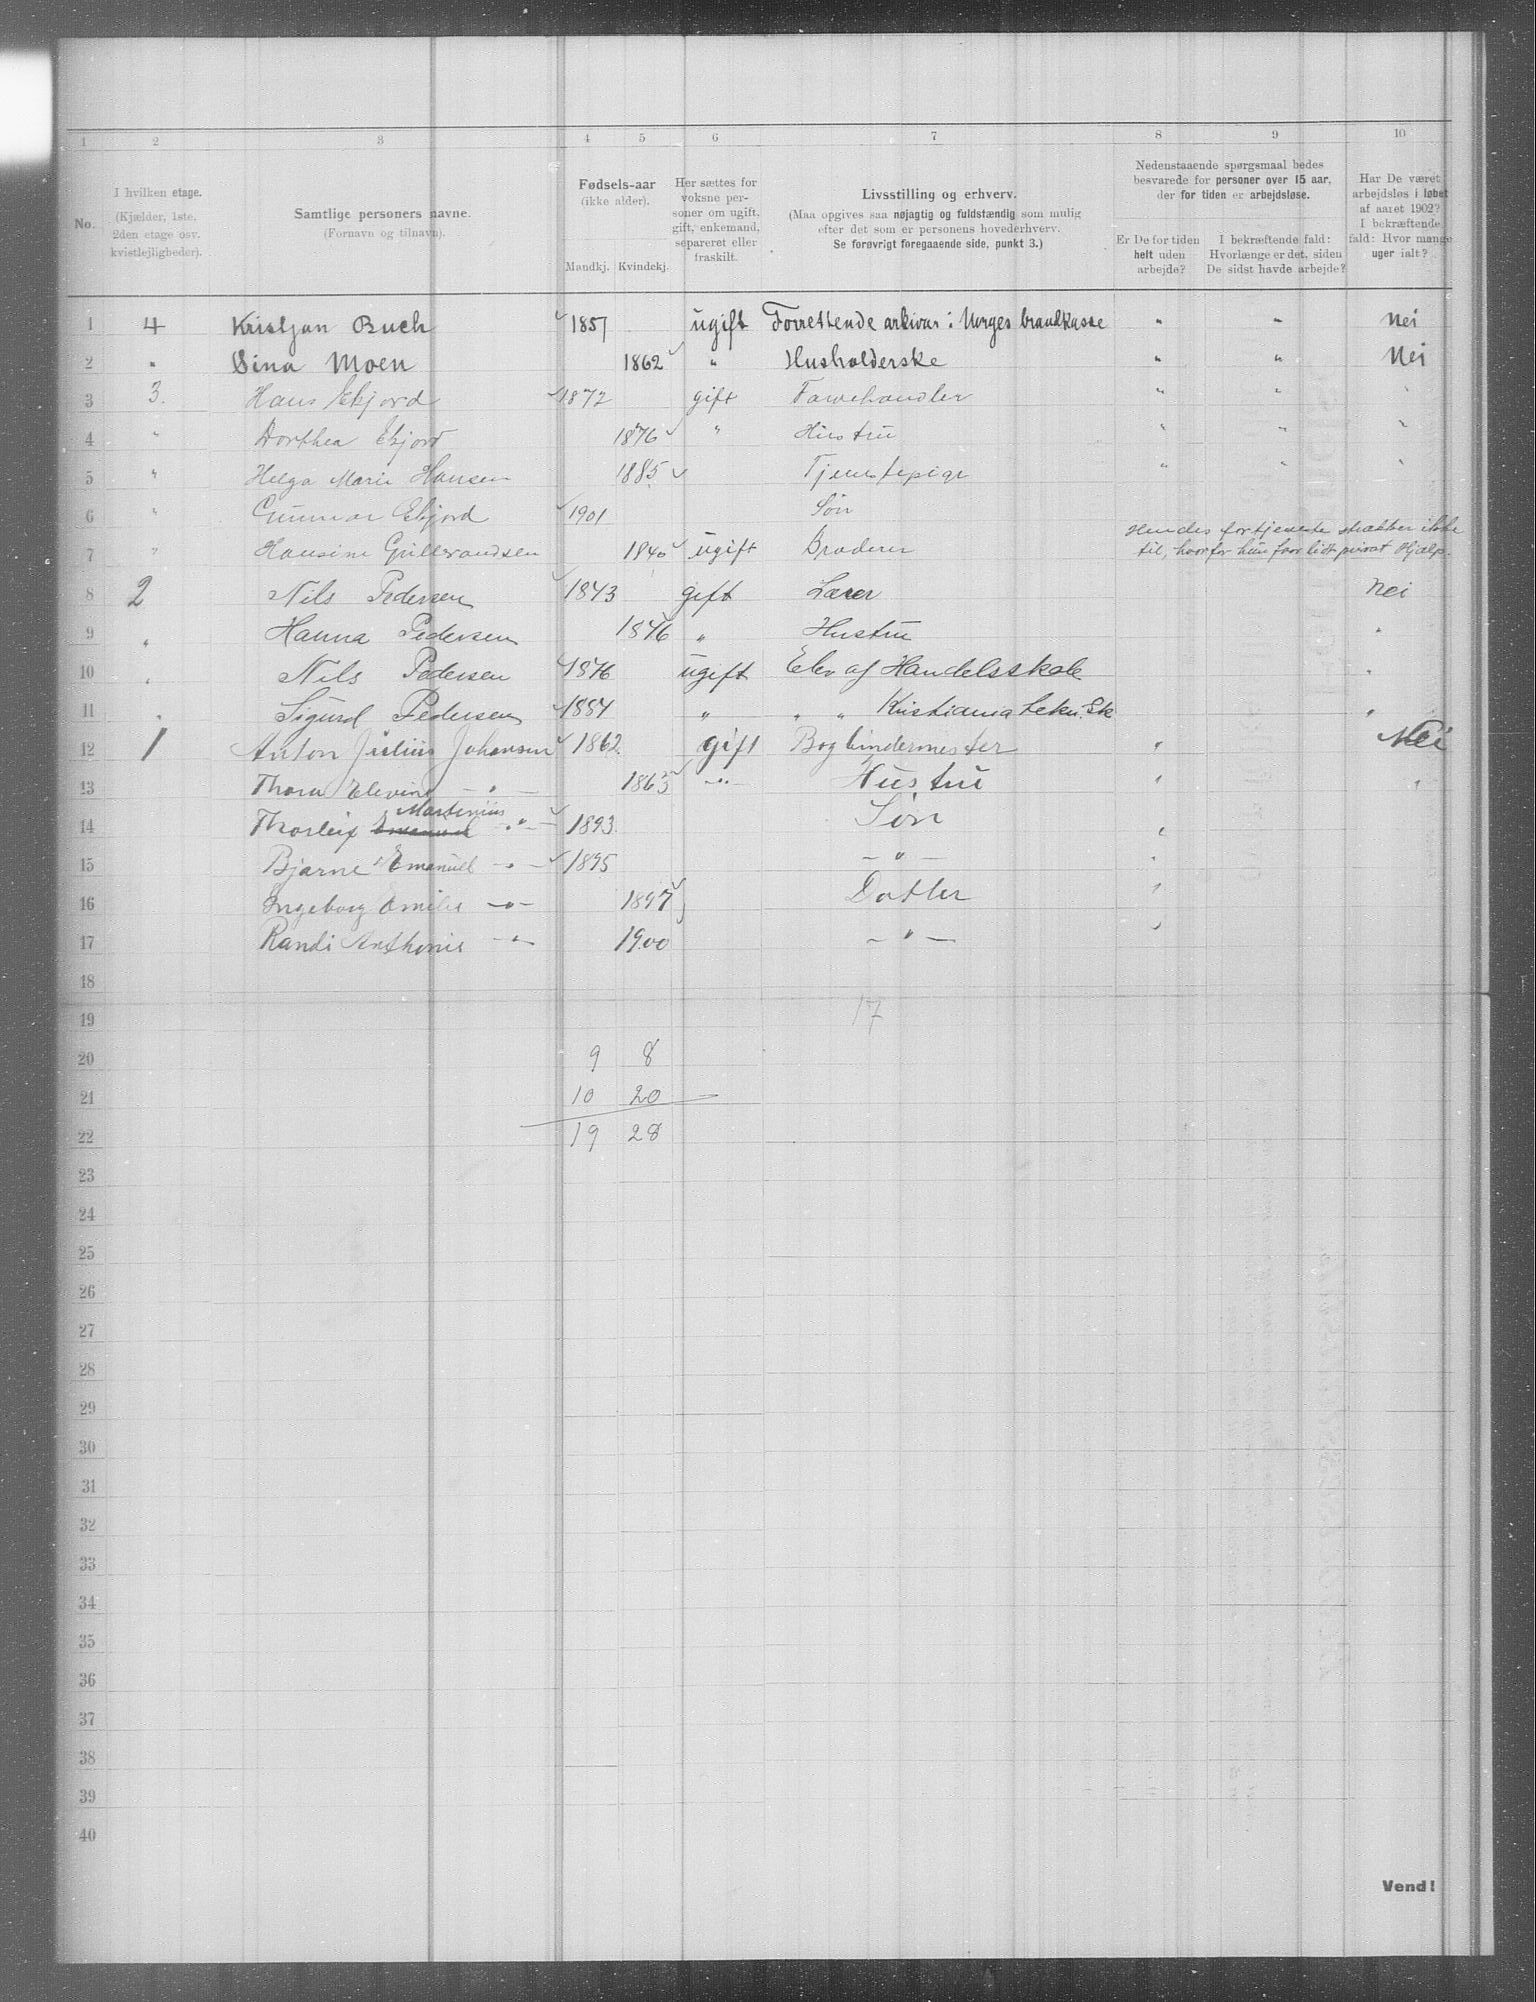 1 2 3 4 5 6 7 8 9 10
No.
I hvilken etage.
(Kjælder, 1ste,
2den etage osv.
kvistlejligheder).
Samtlige personers navne.
(Fornavn og tilnavn).
Fødsels-aar
(ikke alder).
Mandkj. Kvindekj.
Her sættes for
voksne per-
soner om ugift,
gift, enkemand,
separeret eller
fraskilt.
Livsstilling og erhverv.
(Maa opgives saa nøjagtig og fuldstændig som mulig
efter det som er personens hovederhverv.
Se forøvrigt foregaaende side, punkt 3.)
Nedenstaaende spørgsmaal bedes
besvarede for personer over 15 aar,
der for tiden er arbejdsløse.
Er De for tiden
helt uden
arbejde?
I bekræftende fald:
Hvorlænge er det, siden
De sidst havde arbejde?
Har De været
arbejdsløs i løbet
af aaret 1902?
I bekræftende
fald: Hvor mange
uger ialt?
1 4 Kristjan Buch 1857 ugift Forrettende arkivar i Norges brandkasse " " Nei
2 " Sina Moen 1862 " Husholderske " " Nei
3 3. Hans Ekjord 1872 gift Farvehandler " " "
4 " Dorthea Ekjord 1876 " Hustru " " "
5 " Helga Marie Hansen 1885 Tjenstepige " " "
6 " Gunnar Ekjord 1901 Søn
7 " Hansine 1840 ugift Broderer Hendes fortjeneste strækker ikke
til, hvorfor hun faar lidt privat Hjælp.
8 2 Nils Pedersen 1843 gift Lærer Nei
9 " Hanna Pedersen 1846 " Hustru "
10 " Nils Pedersen 1876 ugift Elev af Handelsskole "
11 " Sigurd Pedersen 1884 " " " Kristiania tekn. Sk "
12 1 Anton Julius Johansen 1862 gift Bogbindermester " Nei
13 Thora Elevine - " - 1863 - " - Hustru " "
Martinius
14 Thorleif Emanuel - " - 1893 Søn "
15 Bjarne Emanuel - " - 1895 - " - "
16 Ingeborg Emilie - " - 1897 Datter "
17 Randi Anthonie - " - 1900 - " - "
18
19 17
20 9 8
21 10 20
22 19 28
23
24
25
26
27
28
29
30
31
32
33
34
35
36
37
38
39
40
Vend!